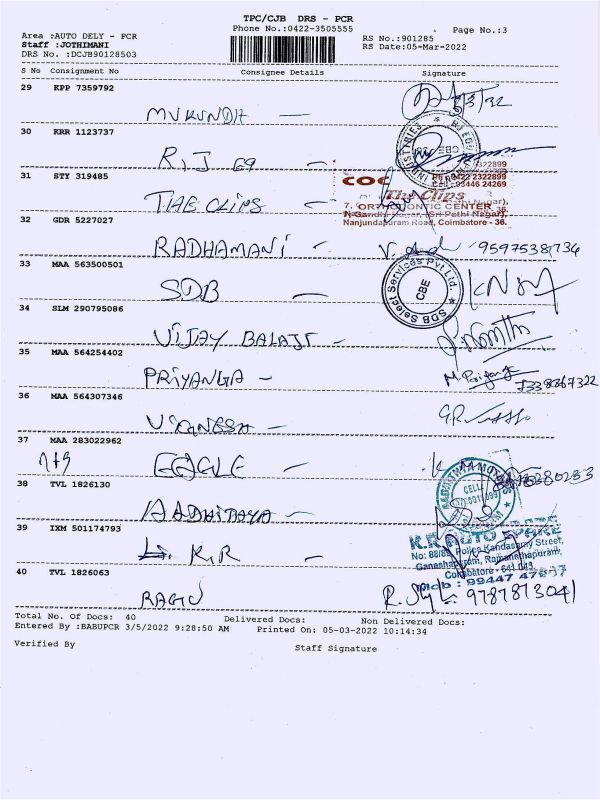 TPC/CJB DRS - PCR
Phone No.:0422-3505555
Page No.:3
Area :AUTO DELY - PCR
RS No.:901285
Staff :JOTHIMANI
RS Date:05-Mar-2022
DRS No. :DCJB90128503
S No Consignment No Consignee Details Signature
29 KPP 7359792
MUKUNDH —
30 KRR 1123737
R.J 69 —
31 STY 319485
THE CLIPS —
The Clips
7, ORTHODONTIC CENTER
Nanjundapuram Road, Coimbatore - 36.
32 GDR 5227027
RADHAMANI — 9597538736
33 MAA 563500501
SDB —
SDB Select Services Pvt Ltd.
CBE
34 SLM 290795086
VIJAY BALAJI —
35 MAA 564254402
PRIYANGA —
36 MAA 564307346
VIGNESH —
37 MAA 283022962
EAGLE —
38 TVL 1826130
AADHITHYA —
39 IXM 501174793
K.R —
K.R AUTO SPARE
No: 88/89, Police Kandasamy Street,
Ganeshapuram, Ramanathapuram,
Coimbatore - 641 045.
Mob : 99447 47697
40 TVL 1826063
RAGU 9787873041
Total No. Of Docs: 40 Delivered Docs: Non Delivered Docs:
Entered By :BABUPCR 3/5/2022 9:28:50 AM Printed On: 05-03-2022 10:14:34
Verified By Staff Signature